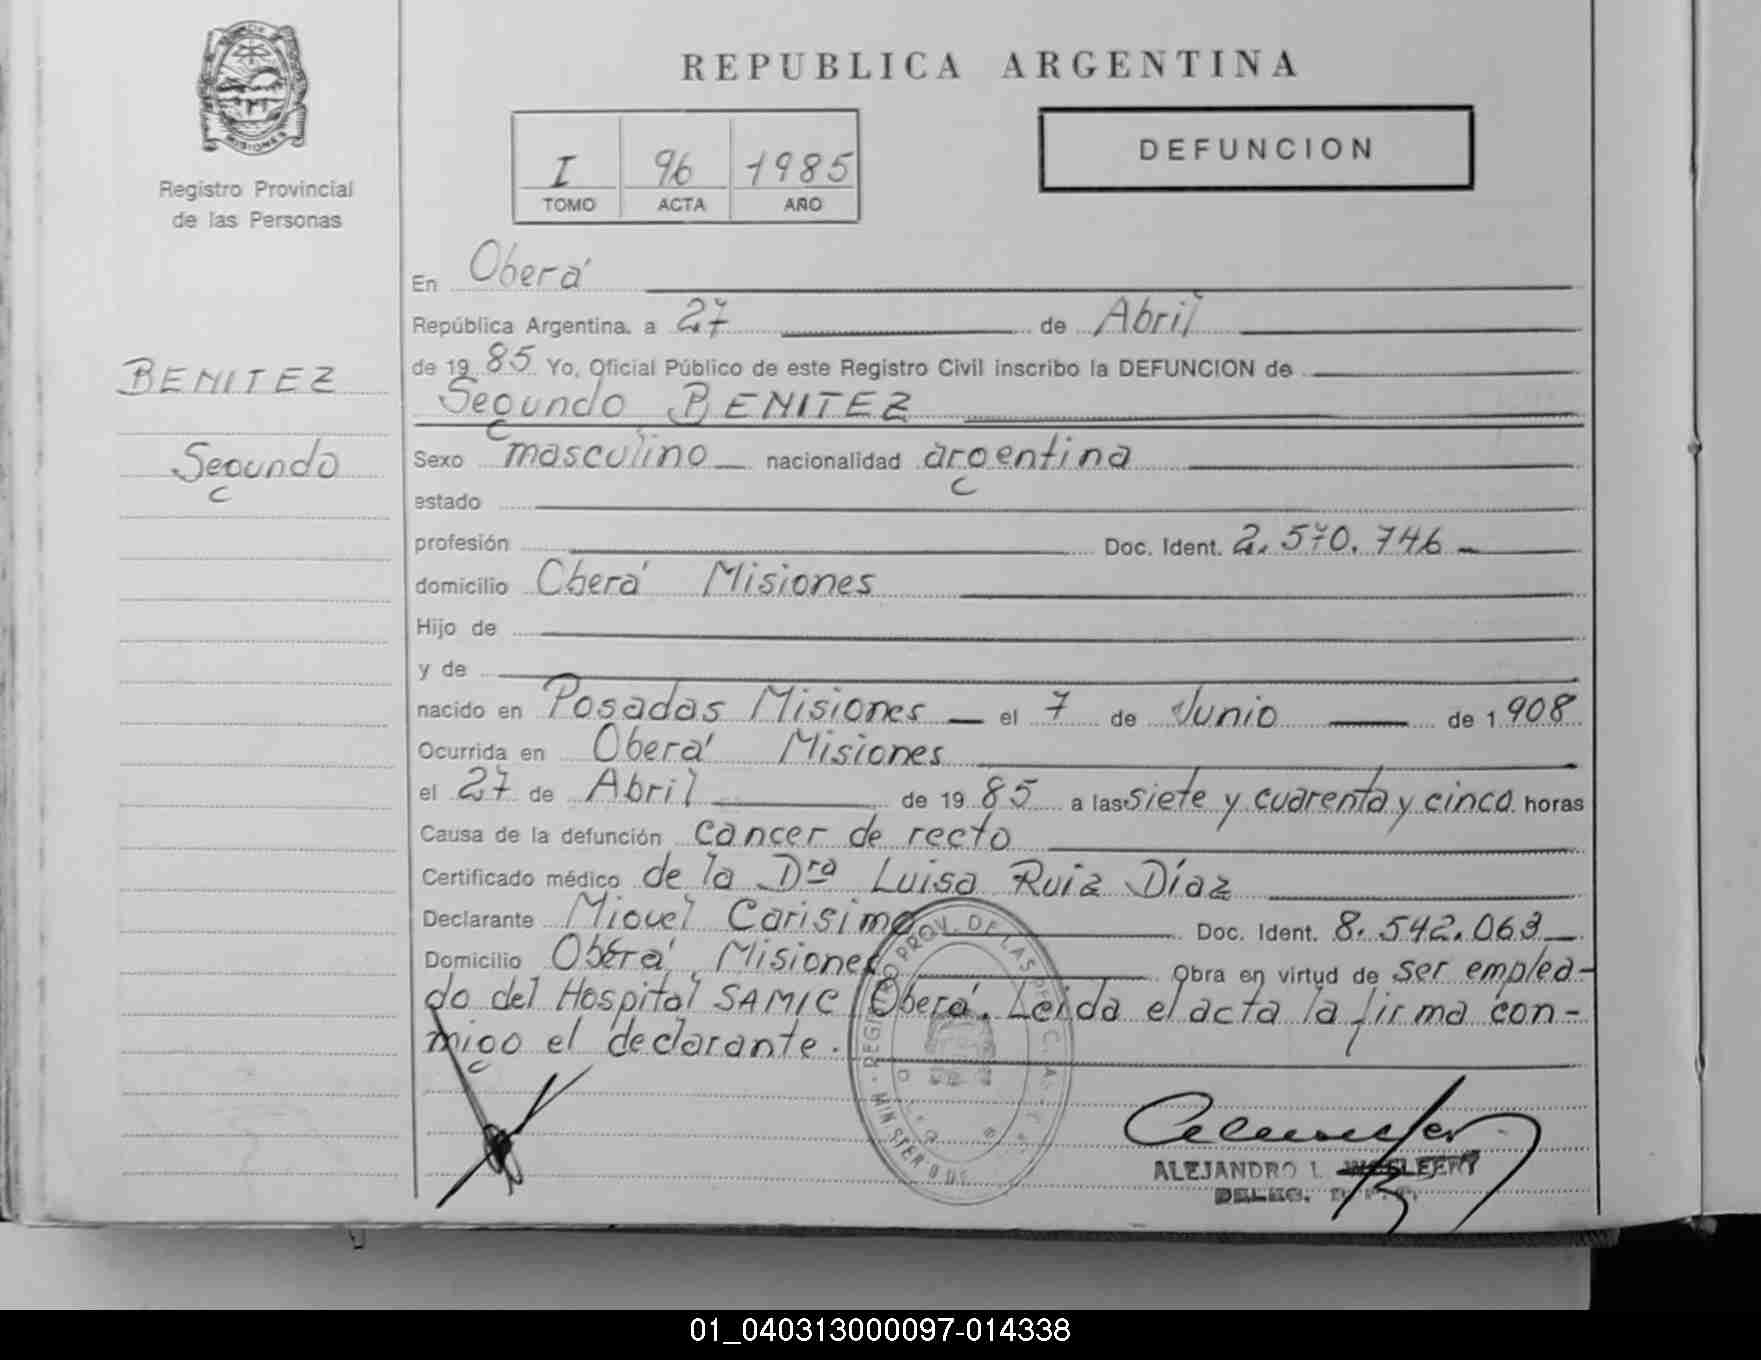 REPUBLICA ARGENTINA
MISIONES
Registro Provincial
de las Personas
I 96 1985
TOMO ACTA AÑO
DEFUNCION
BENITEZ
Segundo
En Oberá
República Argentina, a 27 de Abril
de 1985 Yo, Oficial Público de este Registro Civil inscribo la DEFUNCION de
Segundo BENITEZ
Sexo masculino nacionalidad argentina
estado
profesión Doc. Ident. 2.570.746
domicilio Oberá Misiones
Hijo de
y de
nacido en Posadas Misiones el 7 de Junio de 1908
Ocurrida en Oberá Misiones
el 27 de Abril de 1985 a las siete y cuarenta y cinco horas
Causa de la defunción cancer de recto
Certificado médico de la Dra Luisa Ruiz Díaz
Declarante Miguel Carisimo Doc. Ident. 8.542.063
Domicilio Oberá Misiones Obra en virtud de ser emplea-
do del Hospital SAMIC Oberá. Leída el acta la firma con-
migo el declarante.
PROV. DE LAS
MINISTERIO DE
ALEJANDRO
01_040313000097-014338